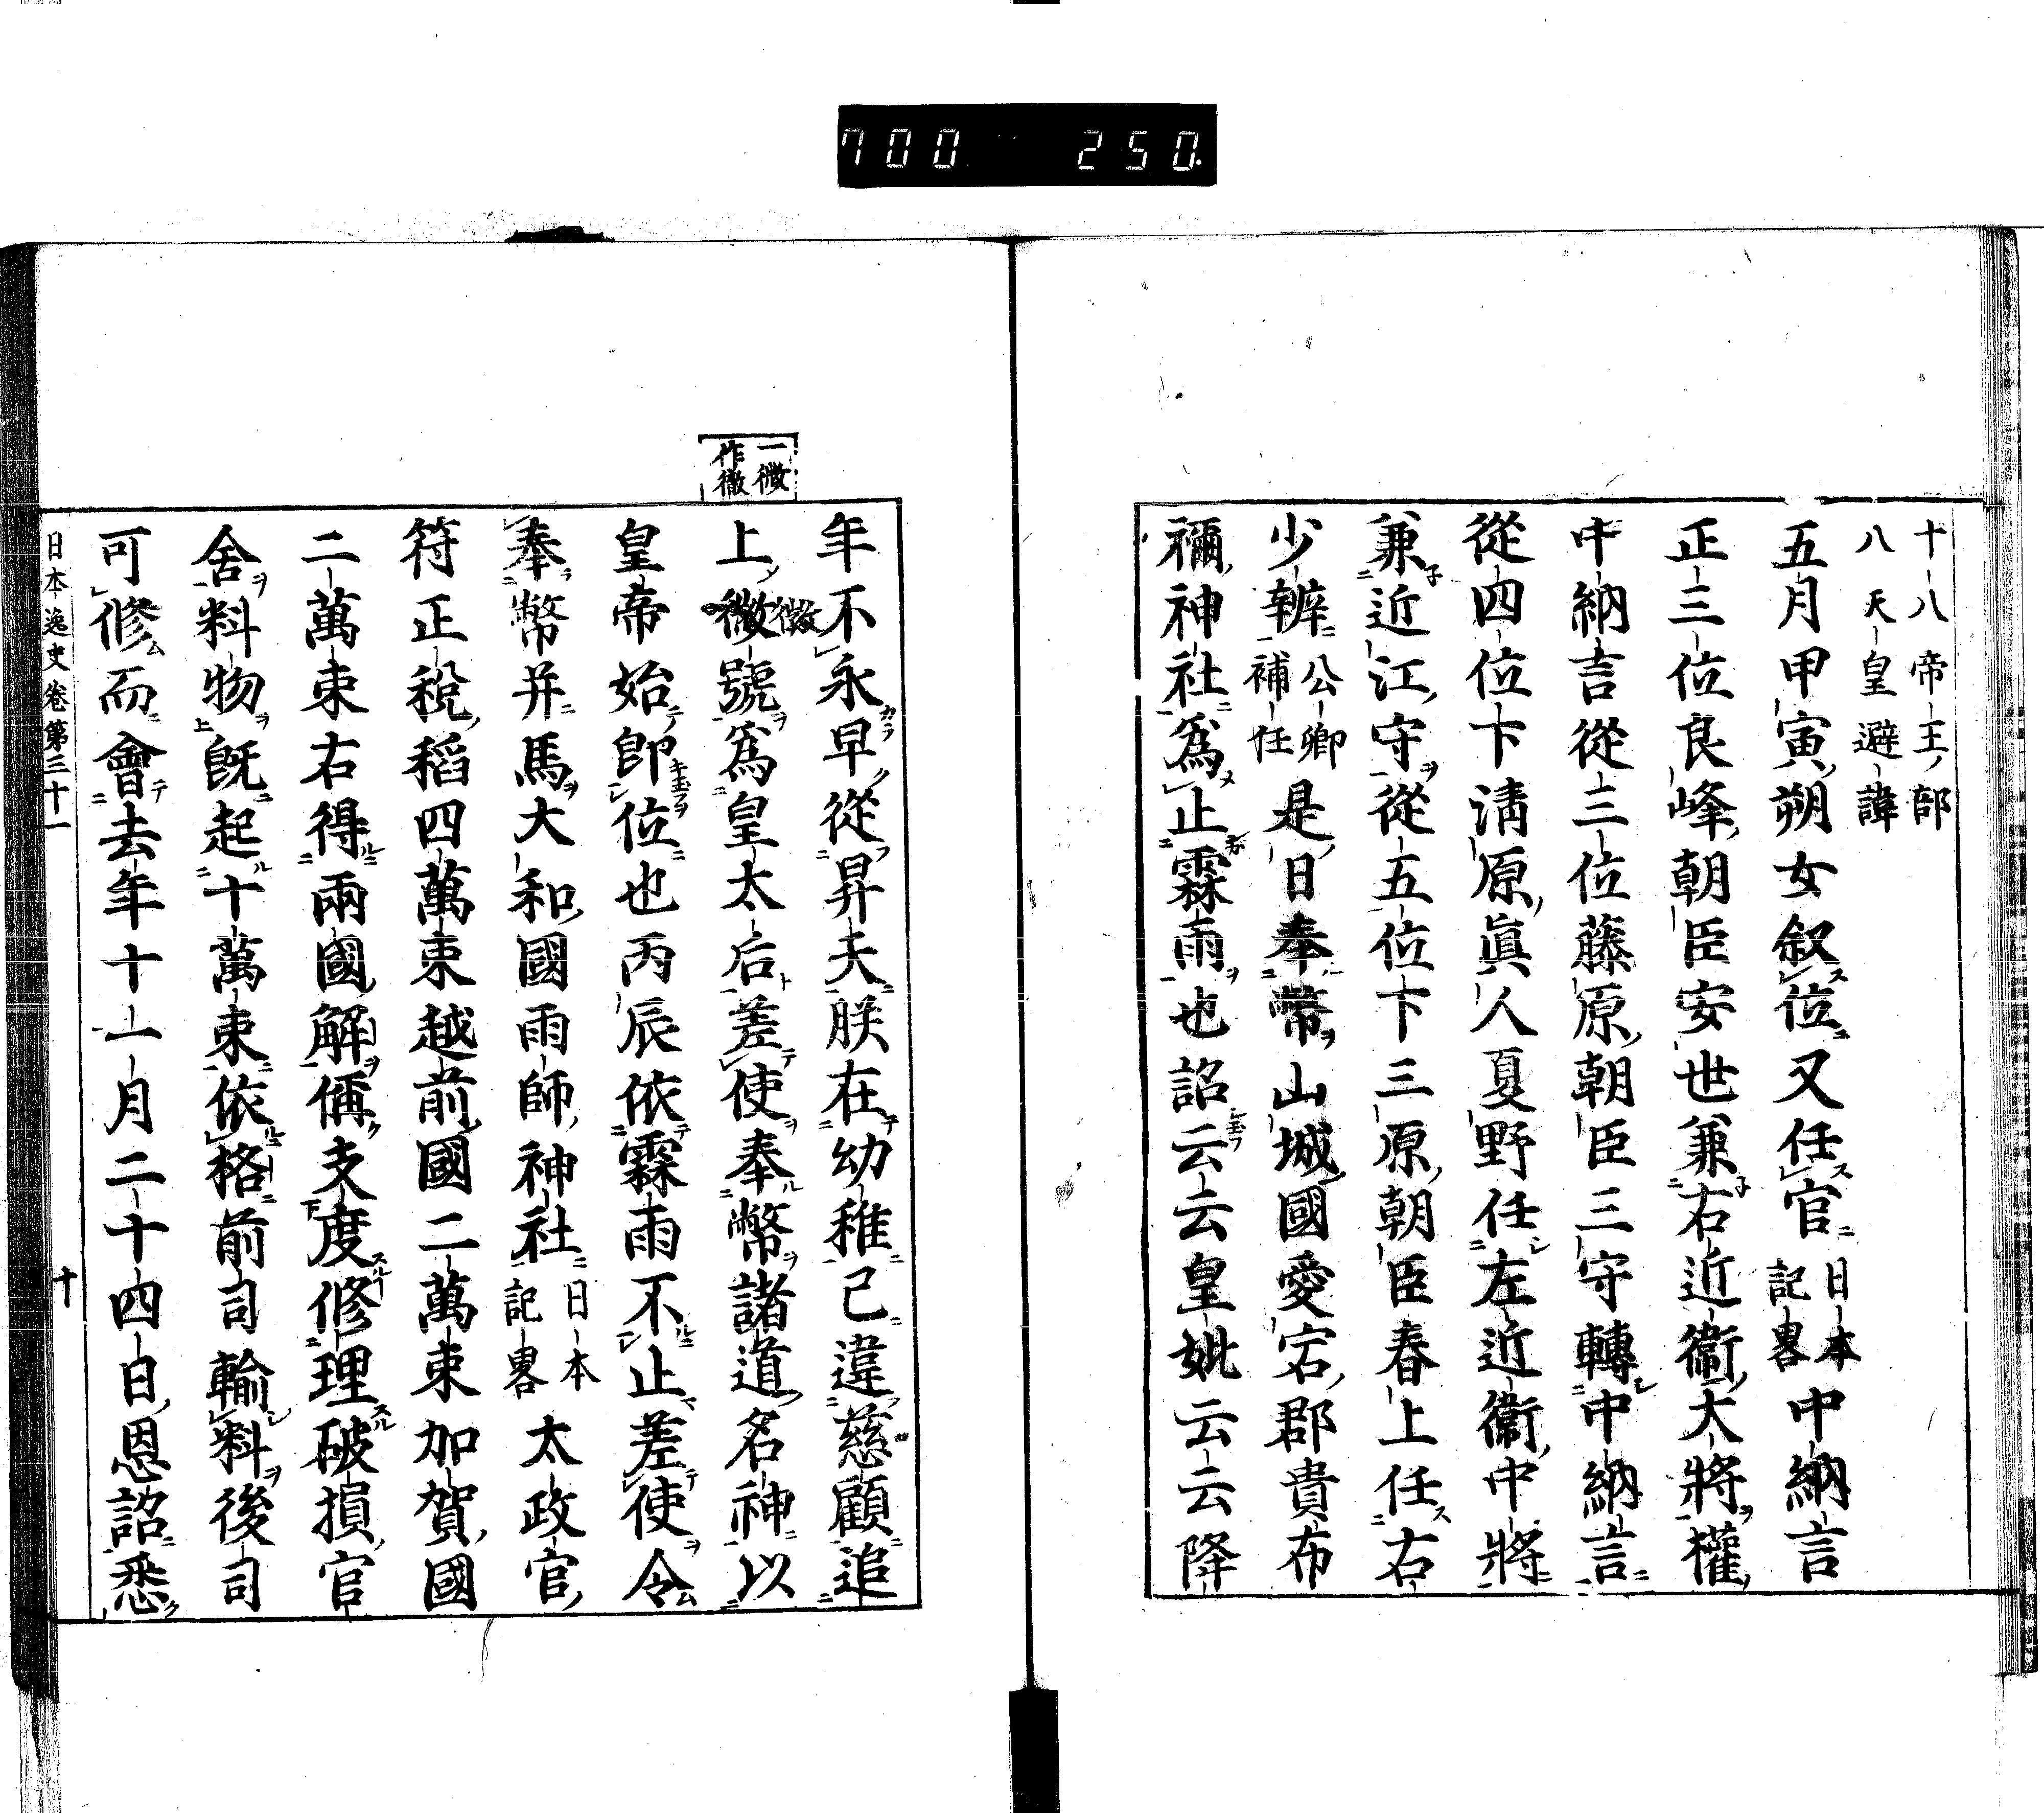 700 250
十八帝王部
八 天皇避諱
五月甲寅朔女叙位又任官日本記畧中納言
正三位良峰朝臣安世兼右近衞大將權
中納言從三位藤原朝臣三守轉中納言
從四位下清原眞人夏野任左近衞中將
兼近江守從五位下三原朝臣春上任右
少辨公卿補任是日奉幣山城國愛宕郡貴布
禰神社爲止霖雨也詔云云皇妣云云降
一微作徽
年不永早從昇天朕在幼稚已違慈顧追
上微徽號爲皇太后差使奉幣諸道名神以
皇帝始卽位也丙辰依霖雨不止差使令
奉幣并馬大和國雨師神社日本記畧太政官
符正税稻四萬束越前國二萬束加賀國
二萬束右得兩國解偁支度修理破損官
舍料物旣起十萬束依格前司輸料後司
可修而會去年十一月二十四日恩詔悉
日本逸史卷第三十一 十